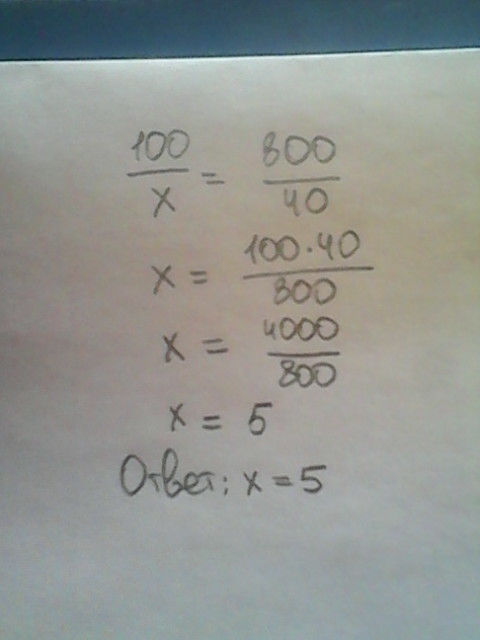 100/x = 800/40
x = 100·40/800
x = 4000/800
x = 5
Ответ: x = 5